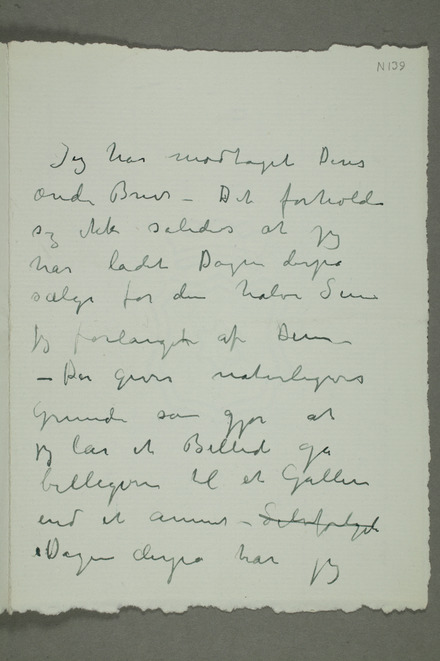 N 139
Jeg har modtaget Deres
ærede Brev – Det forholder
sig ikke saledes at jeg
har ladet Dagen derpa
sælge for den halve Sum
jeg forlangte af Dem
– Der gives naturligvis
Grunde som gjør at
jeg lar et Billed ga
billigere til et Galleri
end et annet – Selvfølgelig
Dagen derpa har jeg